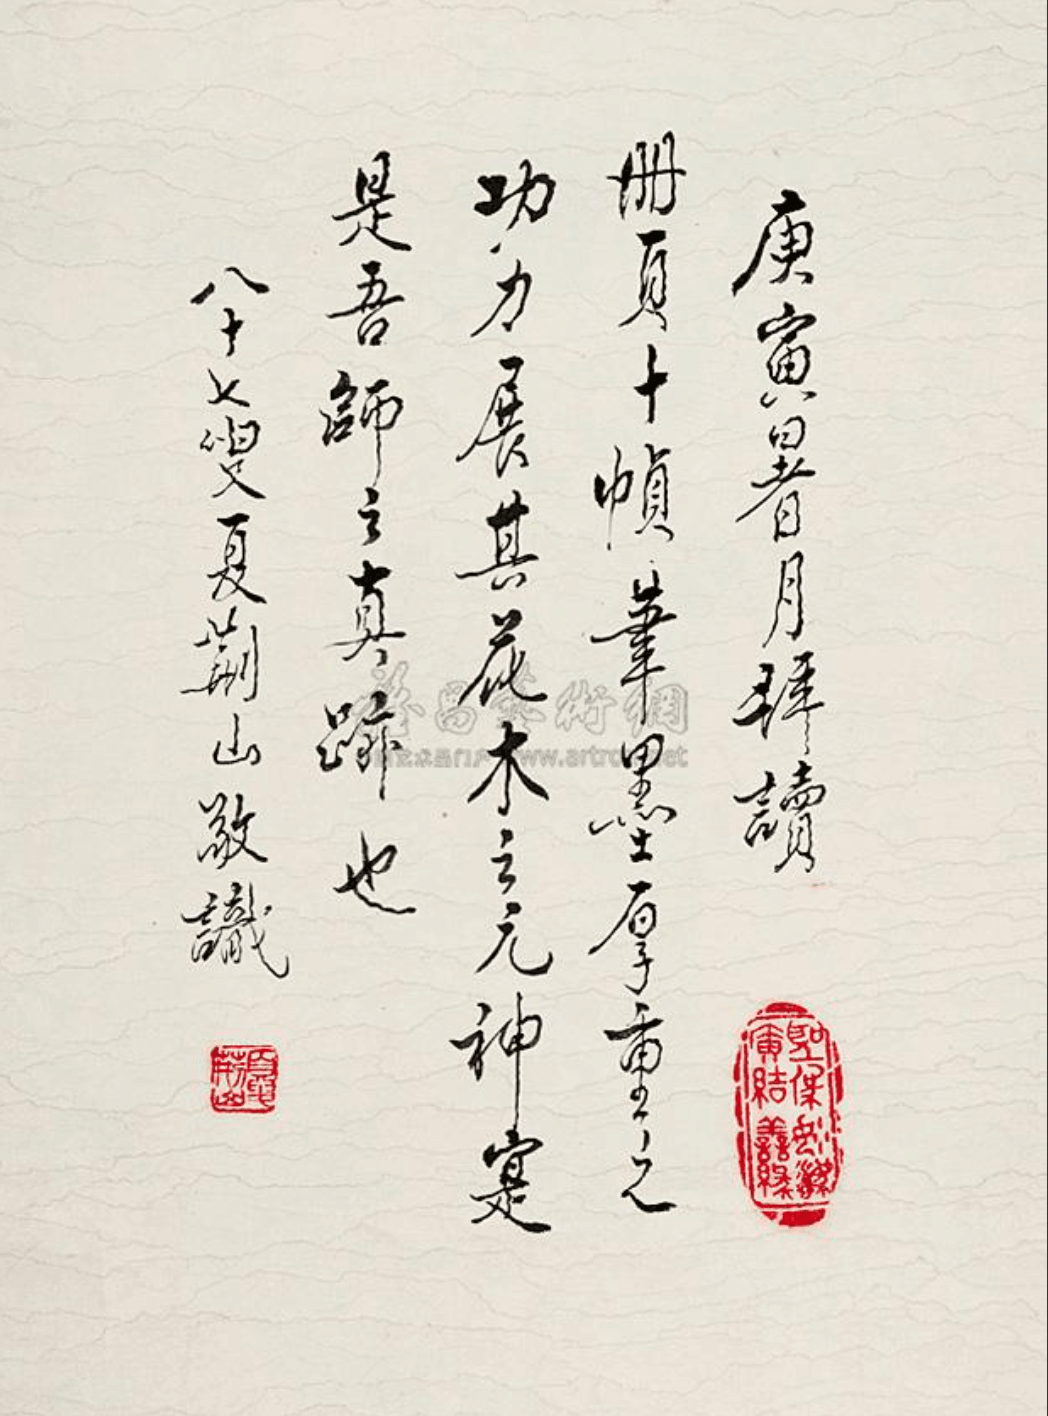 庚寅暑月拜讀
册頁十幀筆墨厚重之
功力展其花木之元神寔
是吾師之真跡也
八十七叟夏荆山敬識
夏荆山
雅昌藝術網
www.artron.net